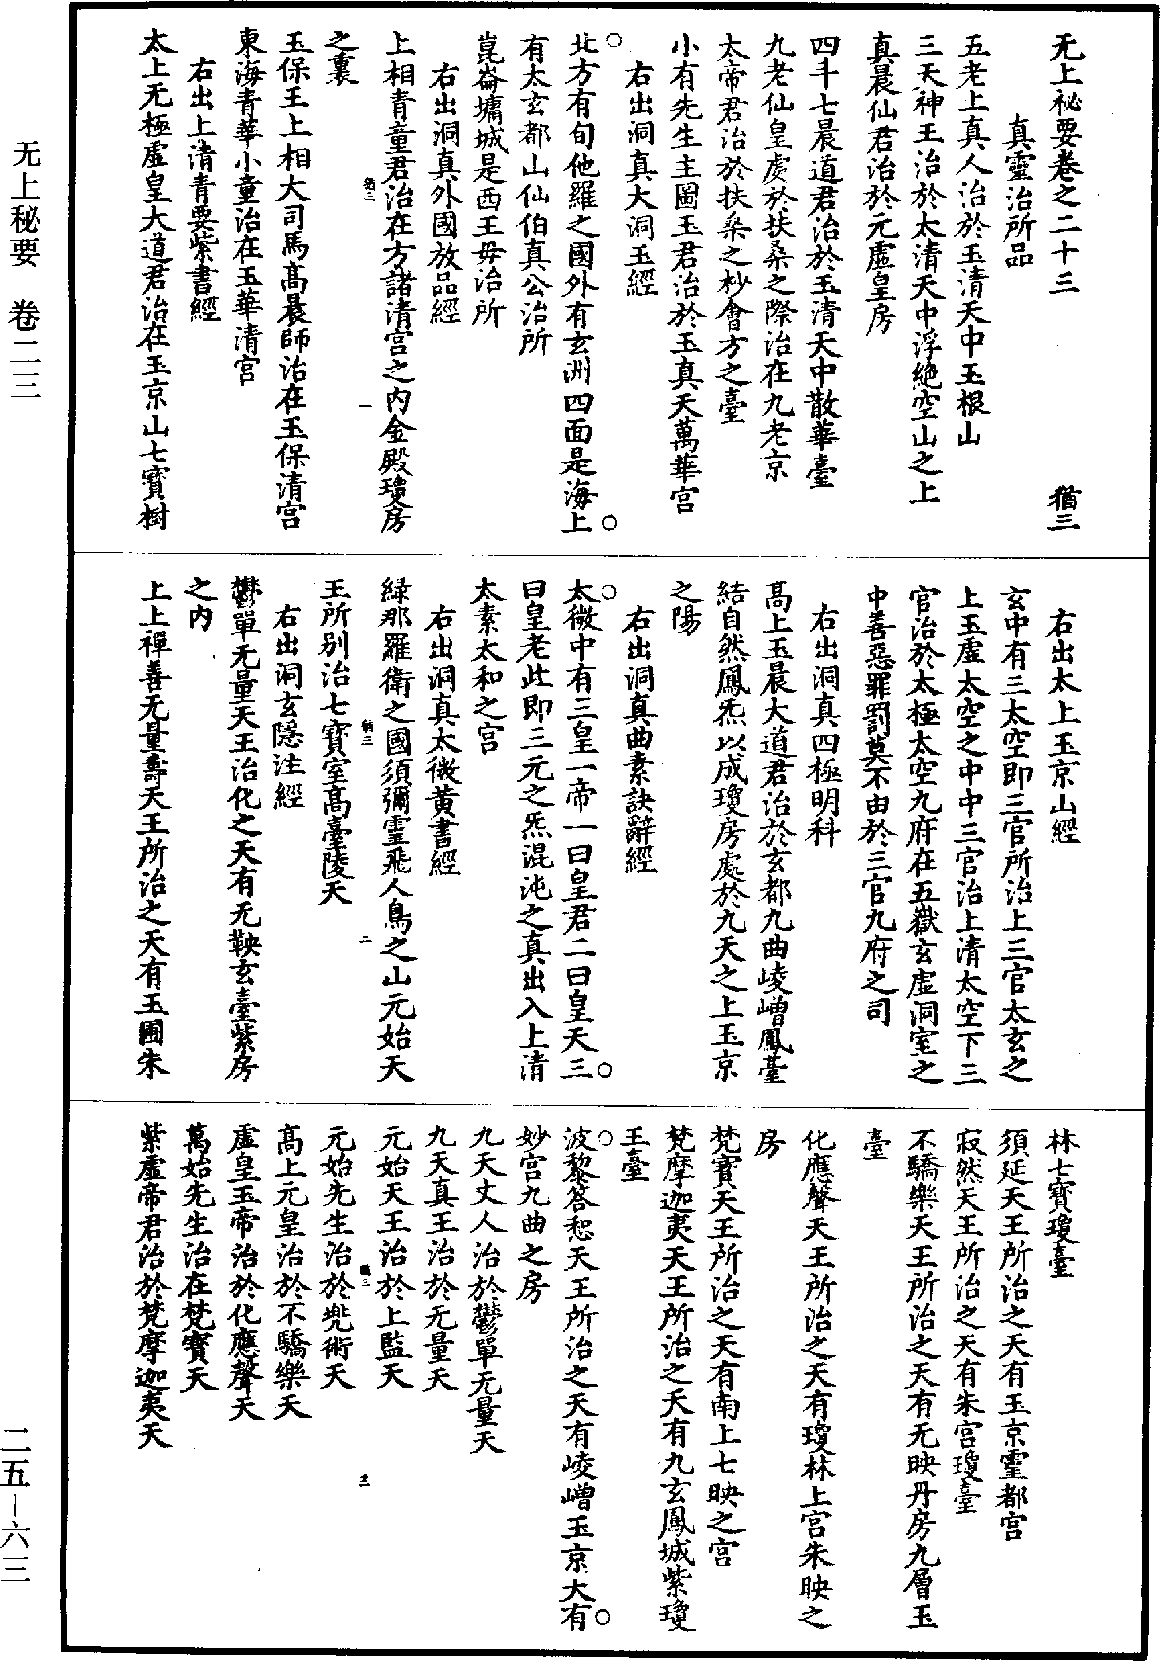 无上秘要　卷二三
二五—六三
无上祕要卷之二十三　猶三
真靈治所品
五老上真人治於玉清天中玉根山
三天神王治於太清天中浮絶空山之上
真晨仙君治於元虛皇房
四斗七晨道君治於玉清天中散華臺
九老仙皇處於扶桑之際治在九老京
太帝君治於扶桑之杪會方之臺
小有先生主圖玉君治於玉真天萬華宫
右出洞真大洞玉經
北方有旬他羅之國外有玄洲四面是海上
有太玄都山仙伯真公治所
崑崙墉城是西王母治所
右出洞真外國放品經
上相青童君治在方諸清宫之内金殿瓊房
猶三　一
之裏
玉保王上相大司馬高晨師治在玉保清宫
東海青華小童治在玉華清宫
右出上清青要紫書經
太上无極虛皇大道君治在玉京山七寶樹
右出太上玉京山經
玄中有三太空即三官所治上三官太玄之
上玉虛太空之中中三官治上清太空下三
官治於太極太空九府在五嶽玄虛洞室之
中善惡罪罰莫不由於三官九府之司
右出洞真四極明科
高上玉晨大道君治於玄都九曲崚嶒鳳臺
結自然鳳炁以成瓊房處於九天之上玉京
之陽
右出洞真曲素訣辭經
太微中有三皇一帝一曰皇君二曰皇天三
曰皇老此即三元之炁混沌之真出入上清
太素太和之宫
右出洞真太微黄書經
緑那羅衛之國須彌靈飛人鳥之山元始天
猶三　二
王所别治七寶室高臺陵天
右出洞玄隱注經
鬱單无量天王治化之天有无鞅玄臺紫房
之内
上上禪善无量壽天王所治之天有玉圃朱
林七寶瓊臺
須延天王所治之天有玉京靈都宫
寂然天王所治之天有朱宫瓊臺
不驕樂天王所治之天有无映丹房九層玉
臺
化應聲天王所治之天有瓊林上宫朱映之
房
梵寶天王所治之天有南上七映之宫
梵摩迦夷天王所治之天有九玄鳳城紫瓊
玉臺
波黎答恕天王所治之天有崚嶒玉京大有
妙宫九曲之房
九天丈人治於鬱單无量天
九天真王治於无量天
元始天王治於上監天
猶三　三
元始先生治於兜術天
高上元皇治於不驕樂天
虛皇玉帝治於化應聲天
萬始先生治在梵寶天
紫虛帝君治於梵摩迦夷天